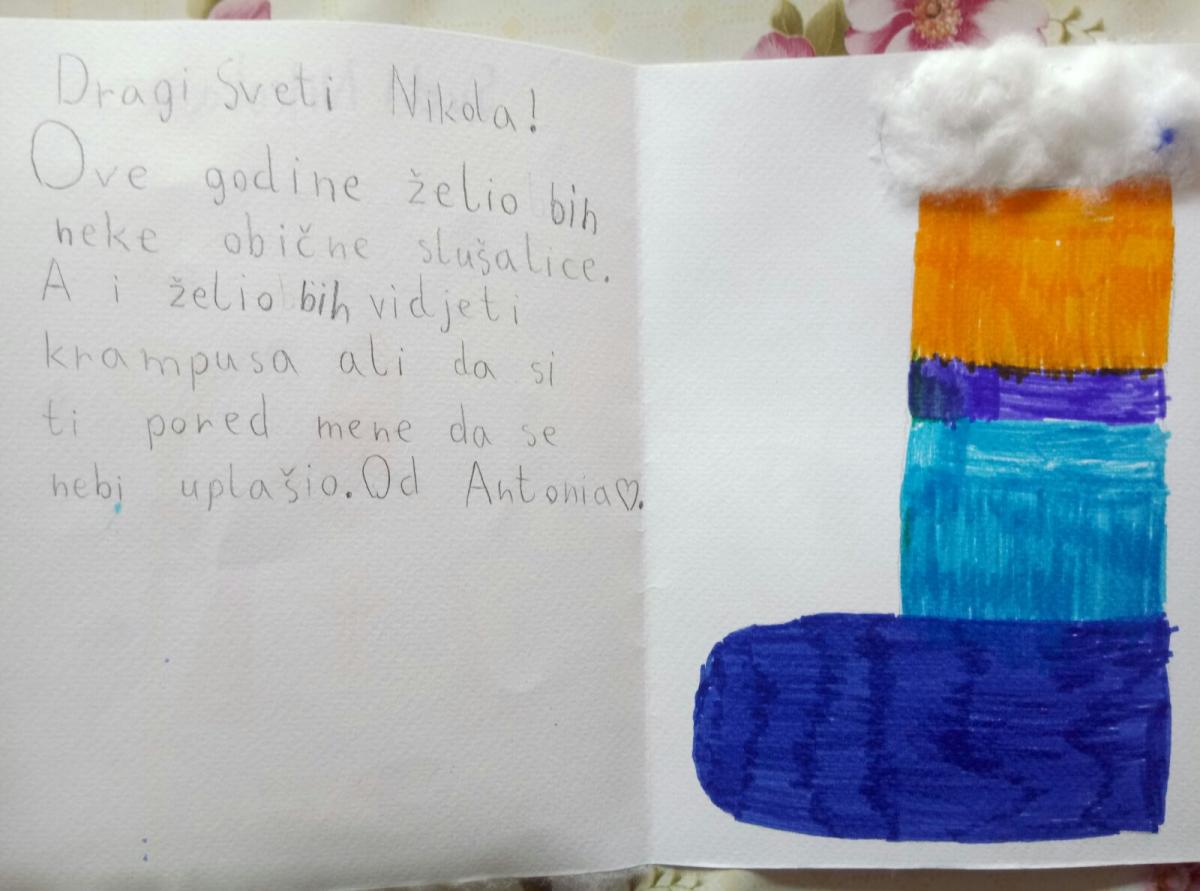 Dragi Sveti Nikola!
Ove godine želio bih
neke obične slušalice.
A i želio bih vidjeti
krampusa ali da si
ti pored mene da se
nebi uplašio. Od Antonia♡.